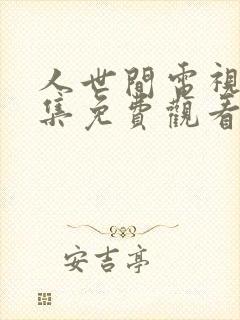 人世間電視
集免費觀看
安吉亭